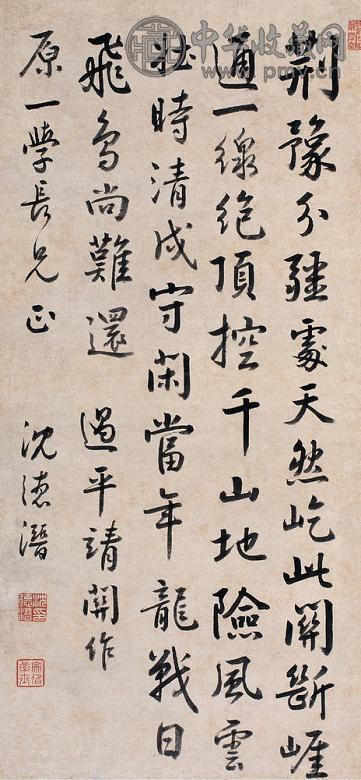 荆豫分疆處天然屹此關斷崕
通一線絶頂控千山地險風雲
壯時清戍守閑當年龍戰日
飛鳥尚難還 過平靖關作
原一學長兄正 沈德潛
中华收藏网
www.pmv.cn